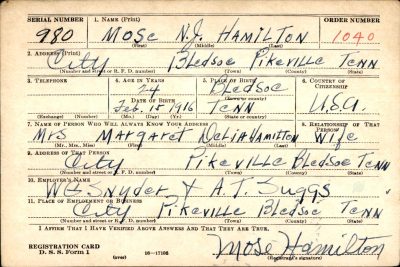 SERIAL NUMBER 1. NAME (Print) ORDER NUMBER
980 MOSE N.J. HAMILTON 1040
(First) (Middle) (Last)
2. ADDRESS (Print)
City Bledsoe Pikeville Tenn
(Number and street or R. F. D. number) (Town) (County) (State)
3. TELEPHONE 4. AGE IN YEARS 5. PLACE OF BIRTH 6. COUNTRY OF CITIZENSHIP
24 Bledsoe
DATE OF BIRTH (Town or county)
Feb. 15 1916 Tenn U.S.A.
(Exchange) (Number) (Mo.) (Day) (Yr.) (State or country)
7. NAME OF PERSON WHO WILL ALWAYS KNOW YOUR ADDRESS 8. RELATIONSHIP OF THAT PERSON
Mrs Margaret Delia Hamilton Wife
(Mr., Mrs., Miss) (First) (Middle) (Last)
9. ADDRESS OF THAT PERSON
City Pikeville Bledsoe Tenn
(Number and street or R. F. D. number) (Town) (County) (State)
10. EMPLOYER'S NAME
Snyder & A.T. Suggs
11. PLACE OF EMPLOYMENT OR BUSINESS
City Pikeville Bledsoe Tenn
(Number and street or R. F. D. number) (Town) (County) (State)
I AFFIRM THAT I HAVE VERIFIED ABOVE ANSWERS AND THAT THEY ARE TRUE.
REGISTRATION CARD
D. S. S. Form 1 (over) 16—17105 Mose Hamilton
(Registrant's signature)